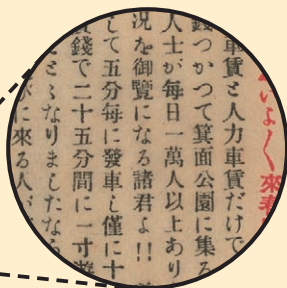 いよ〳〵來春
車賃と人力車賃だけで
錢つかつて箕面公園に集る
人士が每日一萬人以上あり
況を御覽になる諸君よ!!
して五分每に發車し僅に十
錢で二十五分間に一寸遊
とゝなりましたなら
に來る人が